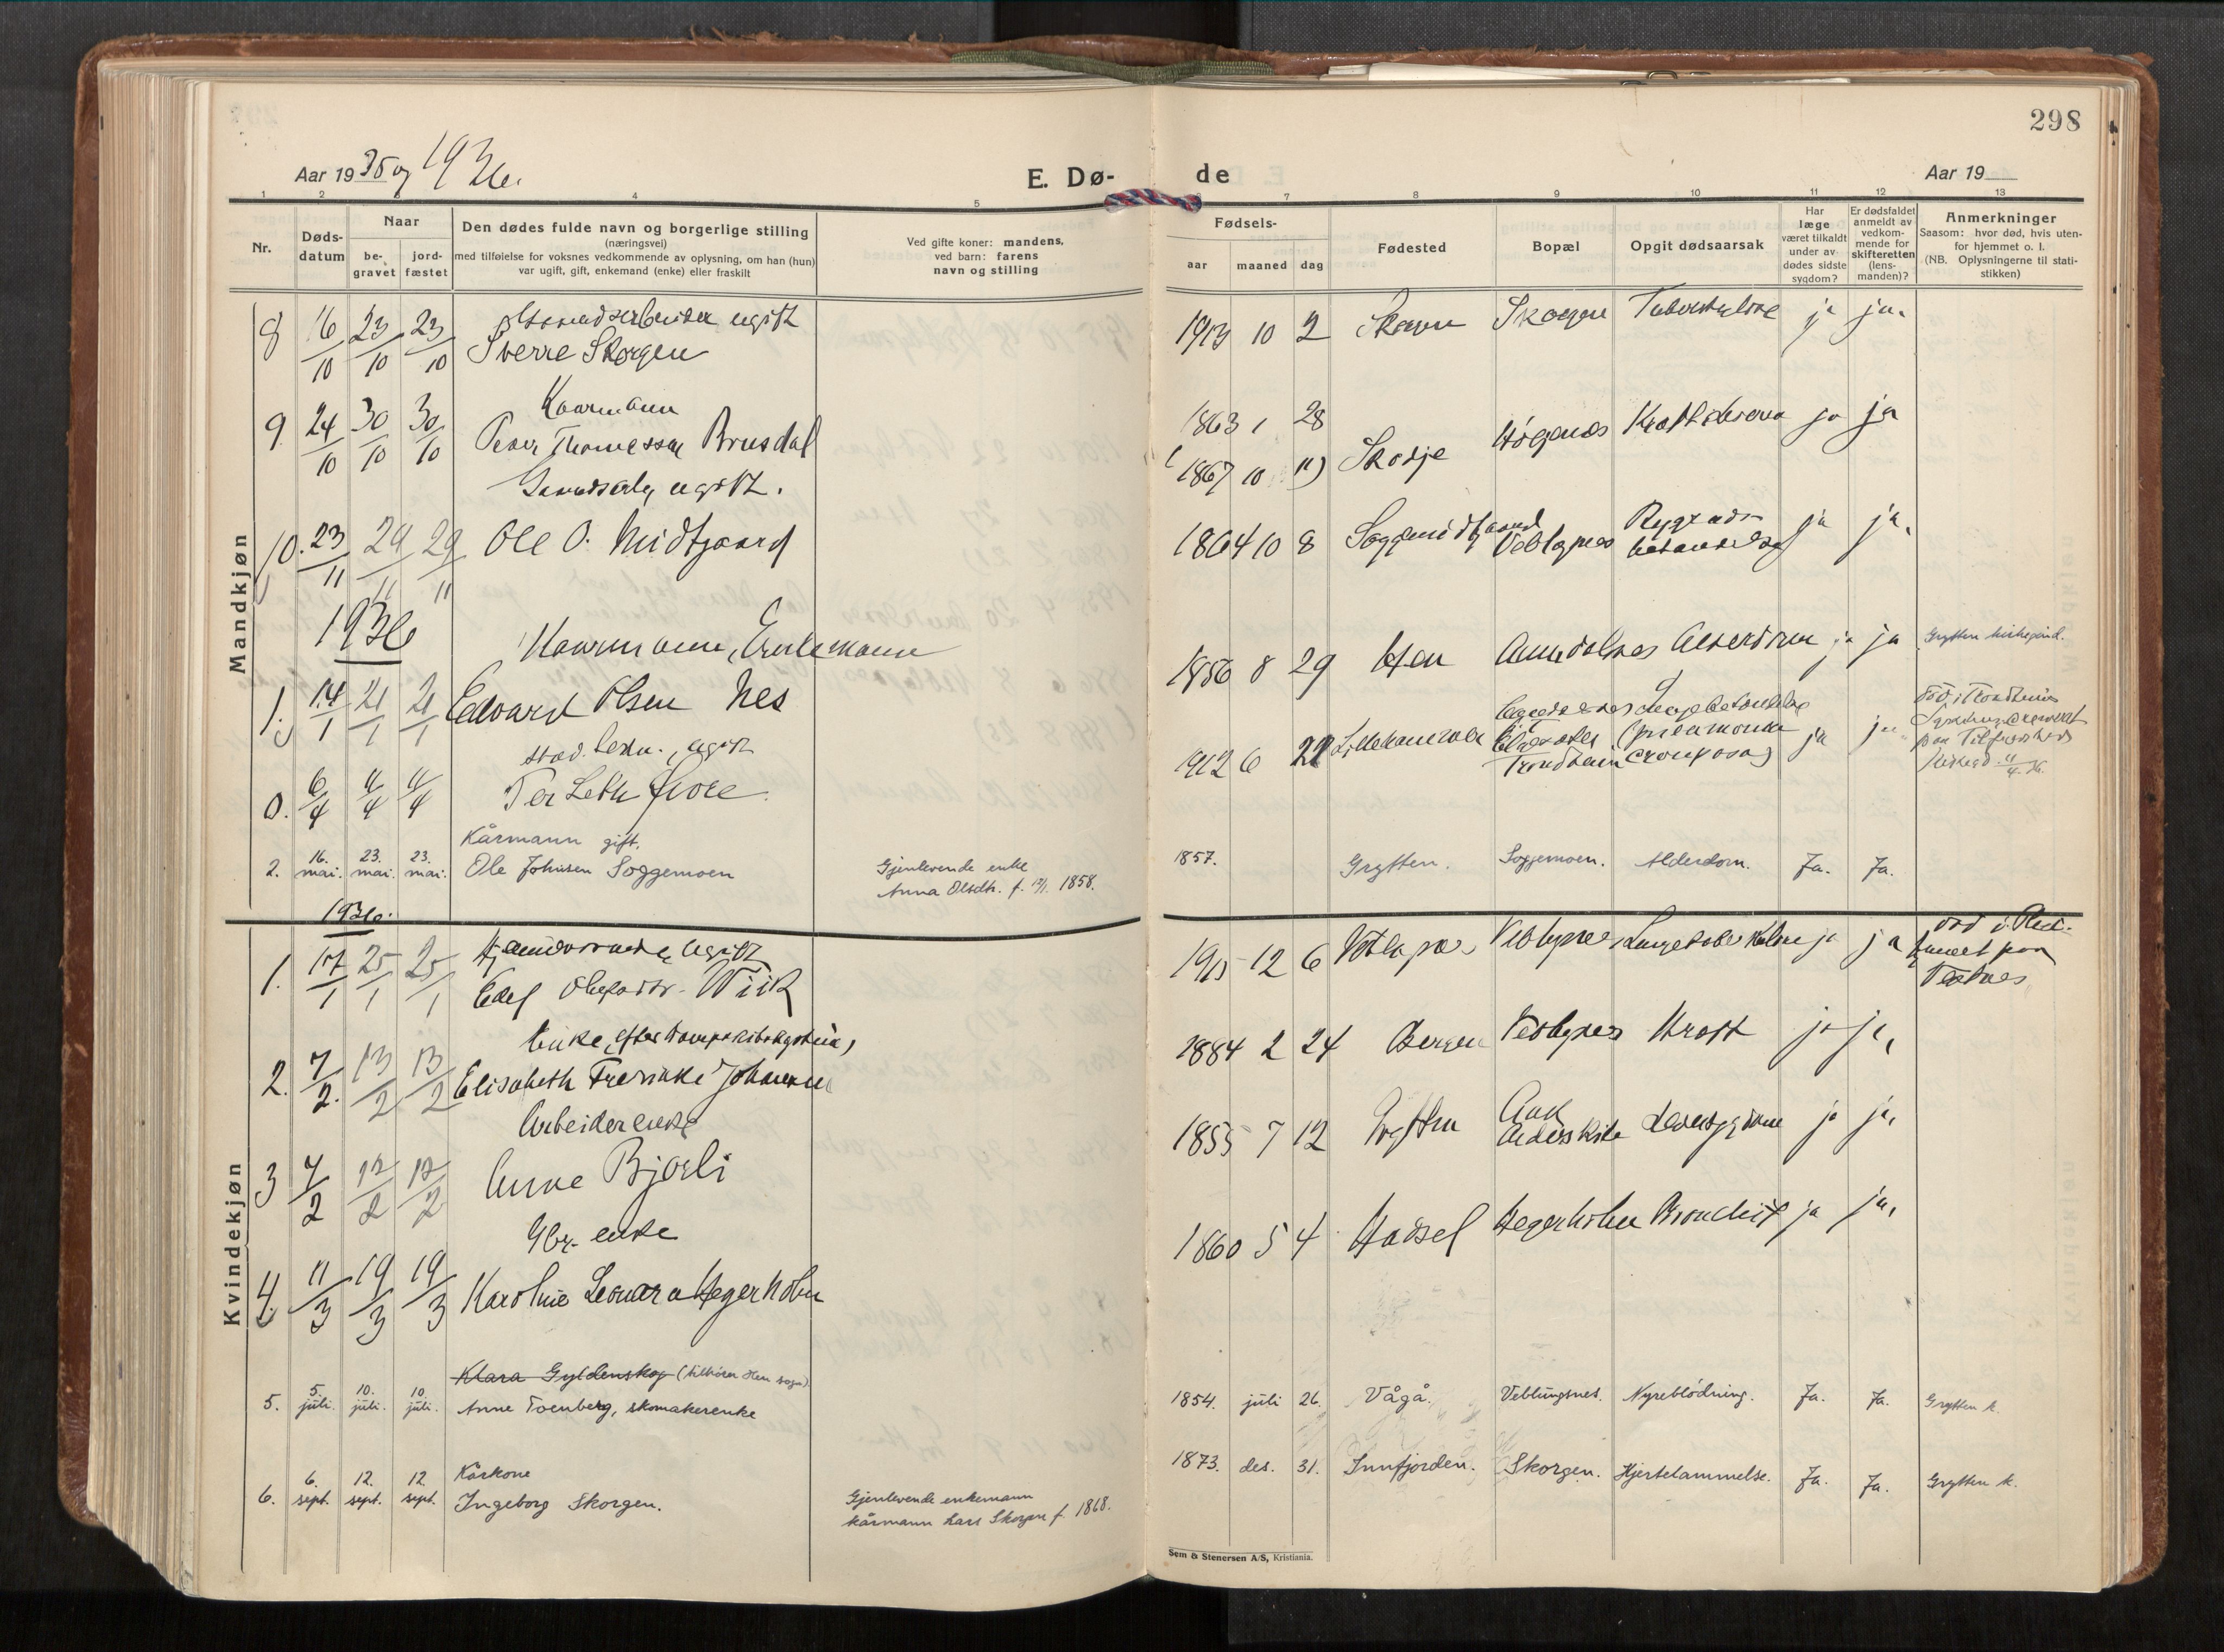 298
Aar 1935 og 1936.
E. Dø-
de
Aar 19
1 2 3 4 5 6 7 8 9 10 11 12 13
Nr.
Døds-
datum
Naar
be-
gravet
jord-
fæstet
Den dødes fulde navn og borgerlige stilling
(næringsvei)
med tilføielse for voksnes vedkommende av oplysning, om han (hun)
var ugift, gift, enkemand (enke) eller fraskilt
Ved gifte koner: mandens,
ved barn: farens
navn og stilling
Fødsels-
aar
maaned
dag
Fødested
Bopæl
Opgit dødsaarsak
Har
læge
været tilkaldt
under av-
dødes sidste
sygdom?
Er dødsfaldet
anmeldt av
vedkom-
mende for
skifteretten
(lens-
manden)?
Anmerkninger
Saasom: hvor død, hvis uten-
for hjemmet o. l.
(NB. Oplysningerne til stati-
stikken)
Mandkjøn
ugift
8 16/10 23/10 23/10 Sverre Skorgen 1913 10 2 Skorgen Skorgen Tuberkulose ja ja.
Kaarmann
9 24/10 30/10 30/10 Peder Thomassen Brusdal 1863 1 28
(1867 10 11) Skodje ja ja
ugift.
10. 23/11 29/11 29/11 Ole O. Midtgaard 1864 10 8 Veblugnes Rygrads- ja ja.
1936
Kaarmann, Enkemann
1. 14/1 21/1 21/1 Edvard Olsen Nes 1856 8 29 Hen Aandalsnes Alderdom ja ja Grytten kirkegård.
stud. ugift
0. 6/4 11/4 11/4 Per Leth 1912 6 22 Lillehammer Trondheim (pneumonia crouposa) ja ja død i Trondheim
Kårmann gift.
2. 16. mai. 23. mai. 23. mai. Ole Johnsen Soggemoen
Gjenlevende enke
Anna Olsdtr. f. 1858.
1857. Grytten. Soggemoen. Alderdom. Ja. Ja.
Kvindekjøn
1936.
Hjemmeværende, ugift
1. 17/1 25/1 25/1 Edel Wiik 1915 12 6 Veblugnes Veblugnes Lungetuberkulose ja ja
død i
paa
Vestnes
Enke, efter
2. 7/2. 13/2 13/2 Elisabeth Fredrikke Johansen 1884 2 24 Bergen Veblugnes Kreft ja ja,
Arbeiderenke
3 7/2 12/2 12/2 Anne Bjørli 1855 7 12 Grytten ja ja,
Gbr. enke
4. 11/3 19/3 19/3 Karoline Leonara Hegerholm 1860 5 4 Hadsel Hegerholm Bronchit ja ja,
Klara Gyldenskog (tilhører Hen sogn).
5. 5. juli. 10. juli. 10. juli. Anne Toenberg, skomakerenke 1854. juli 26. Vågå. Veblungsnes. Nyreblödning. Ja. Ja. Grytten k.
Kårkone
6. 6. sept. 12. sept. 12. sept. Ingeborg Skorgen.
Gjenlevende enkemann
kårmann Lars Skorgen f. 1868.
1873. des. 31. Innfjorden. Skorgen. Hjertelammelse. Ja. Ja. Grytten k.
Sem & Stenersen A/S, Kristiania.